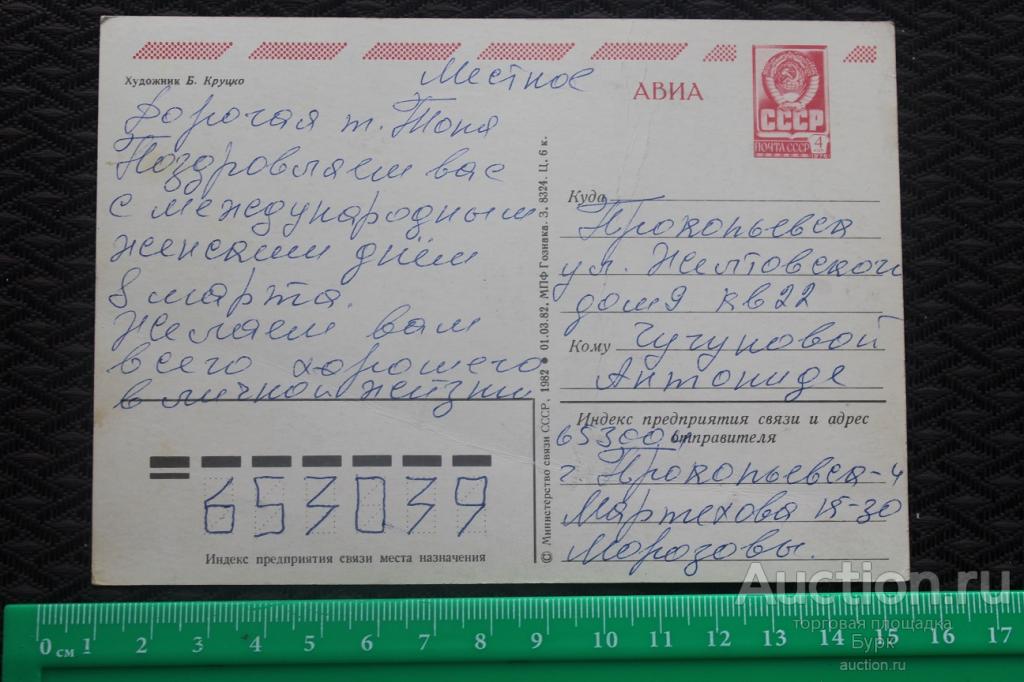 Художник Б. Круцко
Местное
АВИА
СССР
ПОЧТА СССР
4
Дорогая т. Тоня
Поздровляем вас
с международным
женским днём
8 марта.
Желаем вам
всего хорошего
в личной жизни
653039
Индекс предприятия связи места назначения
© Министерство связи СССР, 1982 • 01.03.82. МПФ Гознака. З. 8324. Ц. 6 к.
Куда
Прокопьевск
ул. Желтовской
дом 9 кв 22
Кому Чугуновой
Антониде
Индекс предприятия связи и адрес
отправителя
653004
г. Прокопьевск-4
-30
Морозовы.
0 см 1 2 3 4 5 6 7 8 9 10 11 12 13 14 15 16 17
Auction.ru
торговая площадка
Бурк
auction.ru